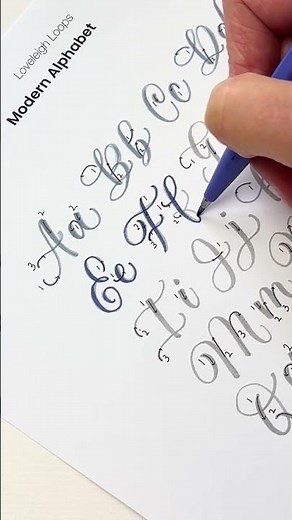 Loveleigh Loops
Modern Alphabet
Aa Bb Cc D
Ee Ff G
Ii Jj
Mm